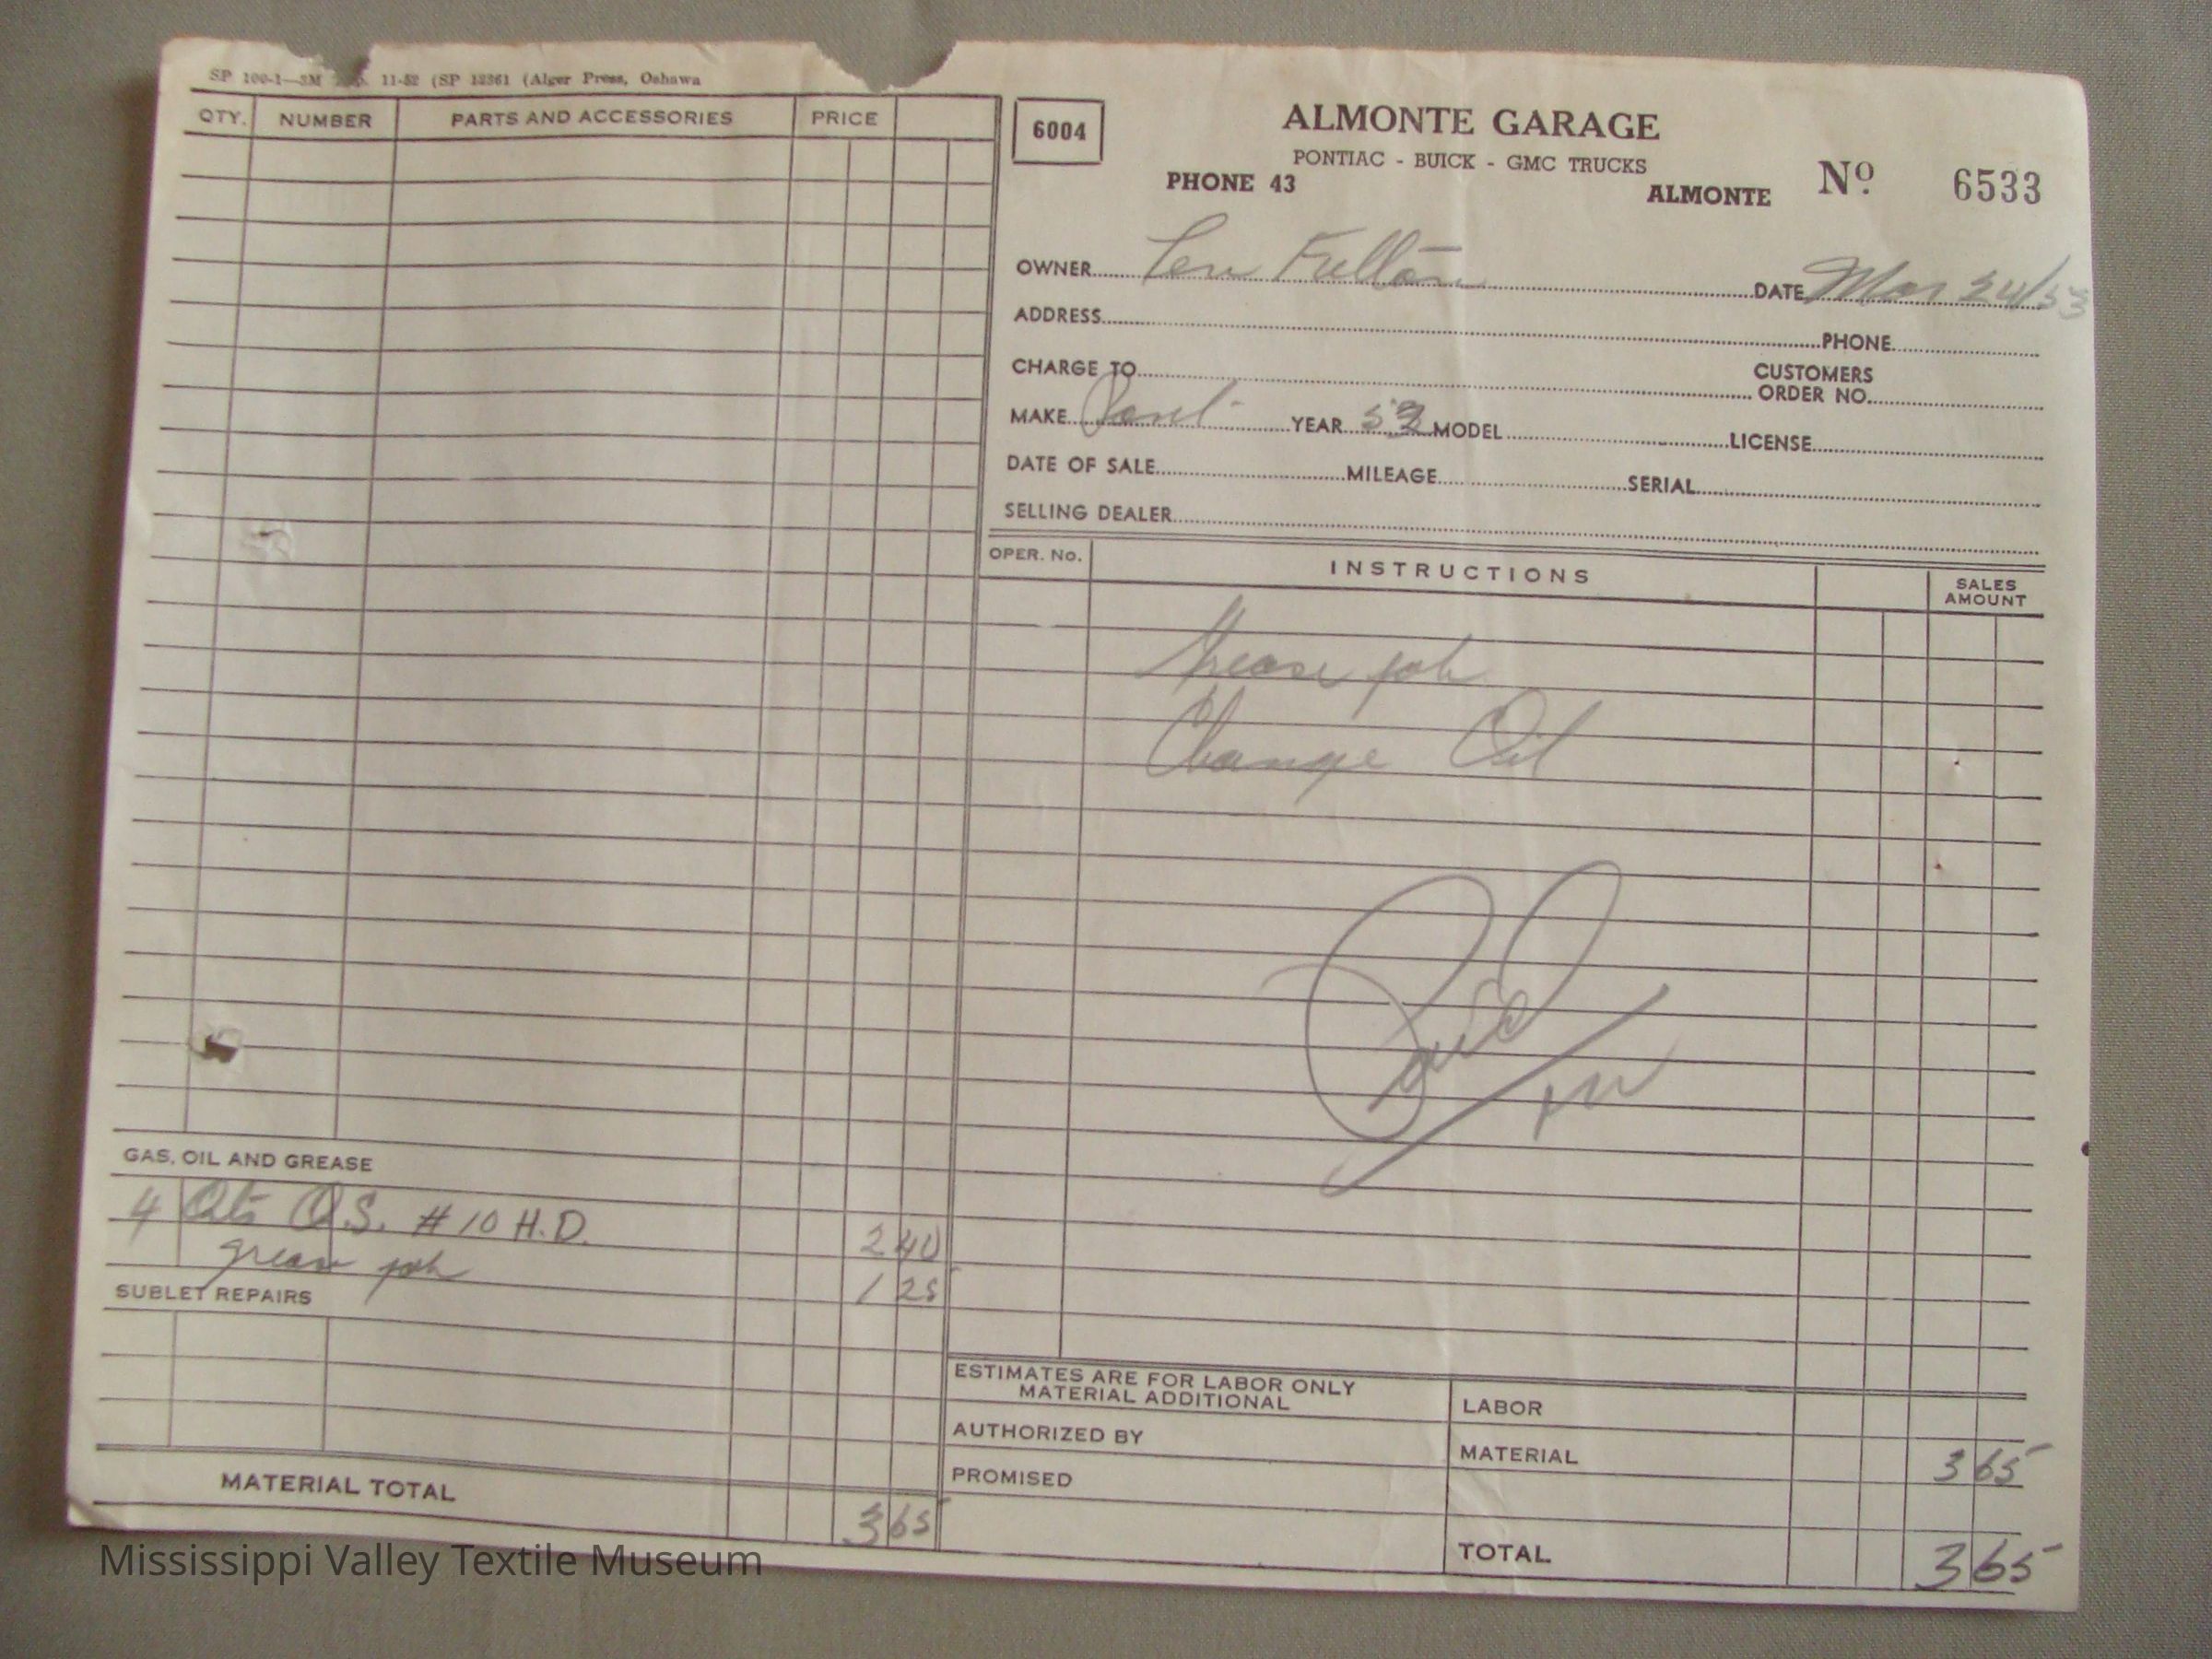 SP 100-1—3M 11-52 (SP 12361 (Alger Press, Oshawa
QTY. NUMBER PARTS AND ACCESSORIES PRICE
GAS, OIL AND GREASE
4 Qts Q.S. # 10 H.D. 2 40
grease job 1 25
SUBLET REPAIRS
MATERIAL TOTAL 3 65
6004
ALMONTE GARAGE
PONTIAC - BUICK - GMC TRUCKS
PHONE 43 ALMONTE Nº 6533
OWNER Fulton DATE Mar 24/53
ADDRESS PHONE
CHARGE TO CUSTOMERS ORDER NO.
MAKE YEAR 53 MODEL LICENSE
DATE OF SALE MILEAGE SERIAL
SELLING DEALER
OPER. No. INSTRUCTIONS SALES AMOUNT
Grease job
Change Oil
Paid
ESTIMATES ARE FOR LABOR ONLY
MATERIAL ADDITIONAL
AUTHORIZED BY
PROMISED
LABOR
MATERIAL 3 65
TOTAL 3 65
Mississippi Valley Textile Museum